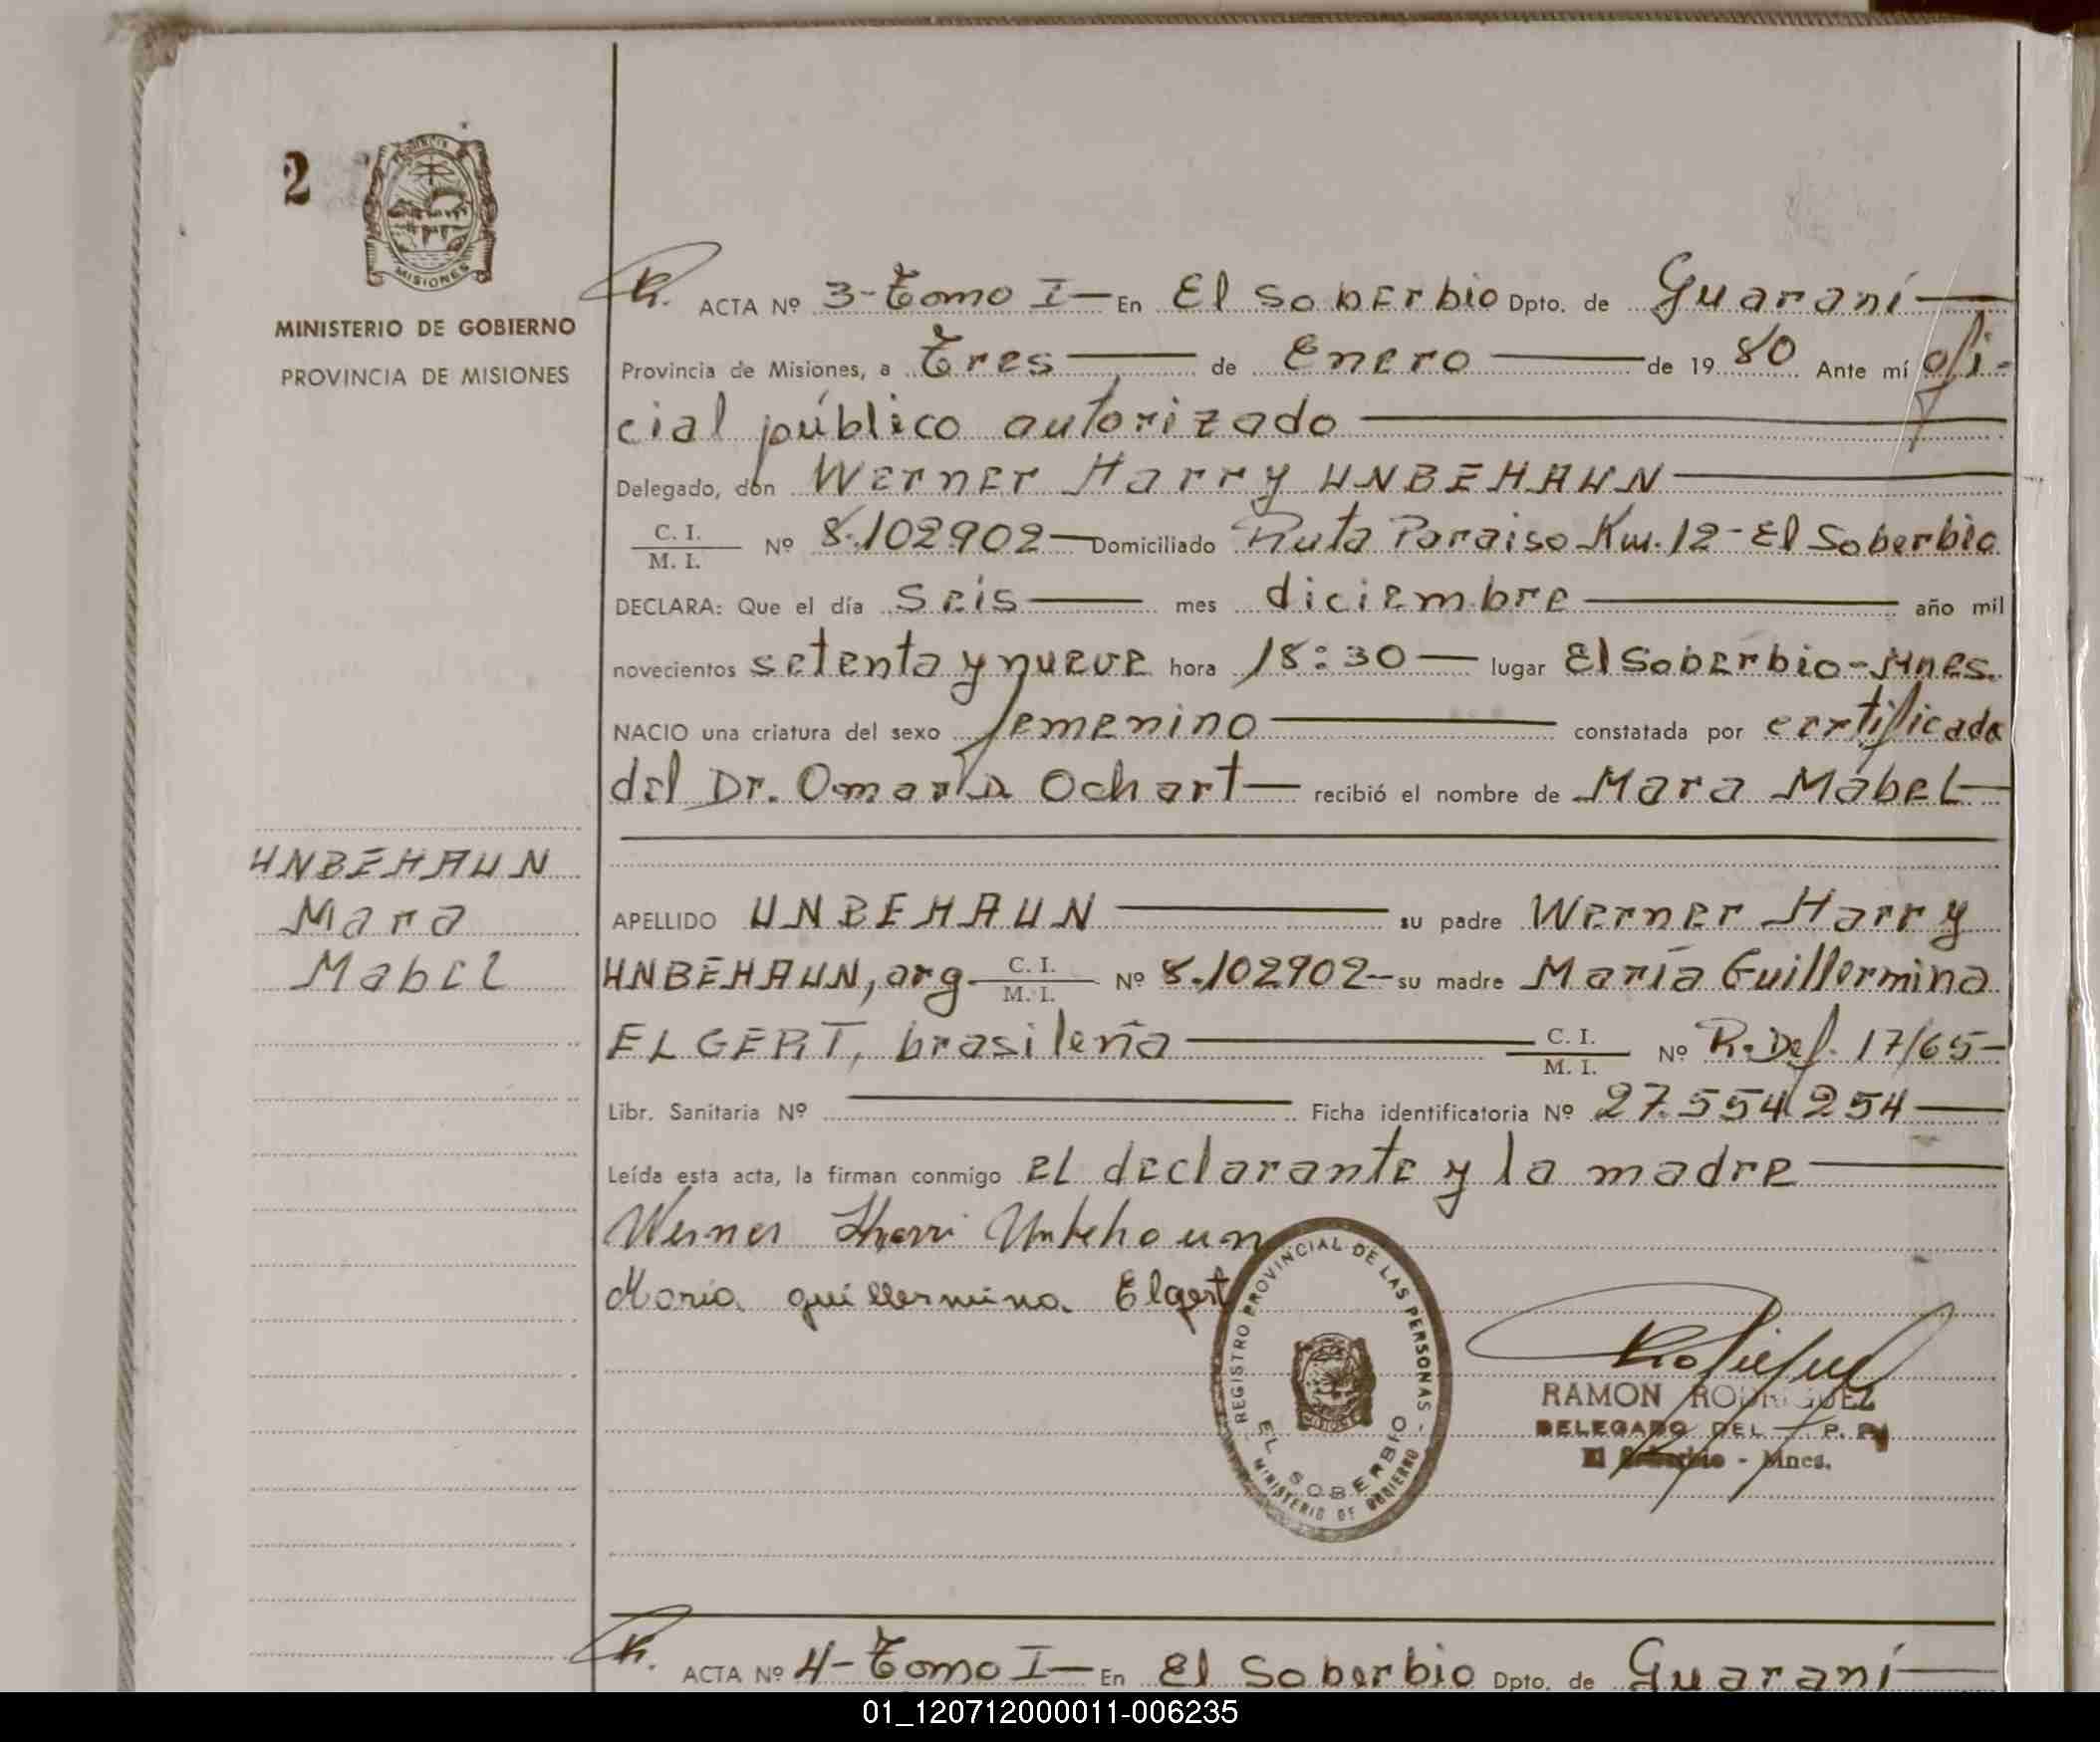 2
PROVINCIA
MISIONES
MINISTERIO DE GOBIERNO
PROVINCIA DE MISIONES
ACTA Nº 3-Tomo I— En El Soberbio Dpto. de Guaraní—
Provincia de Misiones, a Tres— de Enero— de 19 80 Ante mí ofi-
cial público autorizado—
Delegado, don Werner Harry UNBEHAUN—
C. I.
M. I. Nº 8.102902— Domiciliado Ruta Paraiso Km. 12-El Soberbio
DECLARA: Que el día seis— mes diciembre— año mil
novecientos setenta y nueve hora 18:30— lugar El Soberbio-Mnes.
NACIO una criatura del sexo femenino— constatada por certificado
del Dr. Omar Ochart— recibió el nombre de Mara Mabel—
UNBEHAUN
Mara
Mabel
APELLIDO UNBEHAUN— su padre Werner Harry
UNBEHAUN, arg— C. I. M. I. Nº 8.102902- su madre María Guillermina
ELGERT, brasileña— C. I. M. I. Nº R.Def. 17/65-
Libr. Sanitaria Nº — Ficha identificatoria Nº 27.554.254—
Leída esta acta, la firman conmigo el declarante y la madre—
Werner Harri Unbehaun
Maria guillermina Elgert
REGISTRO PROVINCIAL DE LAS PERSONAS -
EL SOBERBIO
MINISTERIO DE GOBIERNO
MISIONES
RAMON RODRIGUEZ
DELEGADO DEL P. P.
El Soberbio - Mnes.
ACTA Nº 4-Tomo I— En El Soberbio Dpto. de Guaraní—
01_120712000011-006235